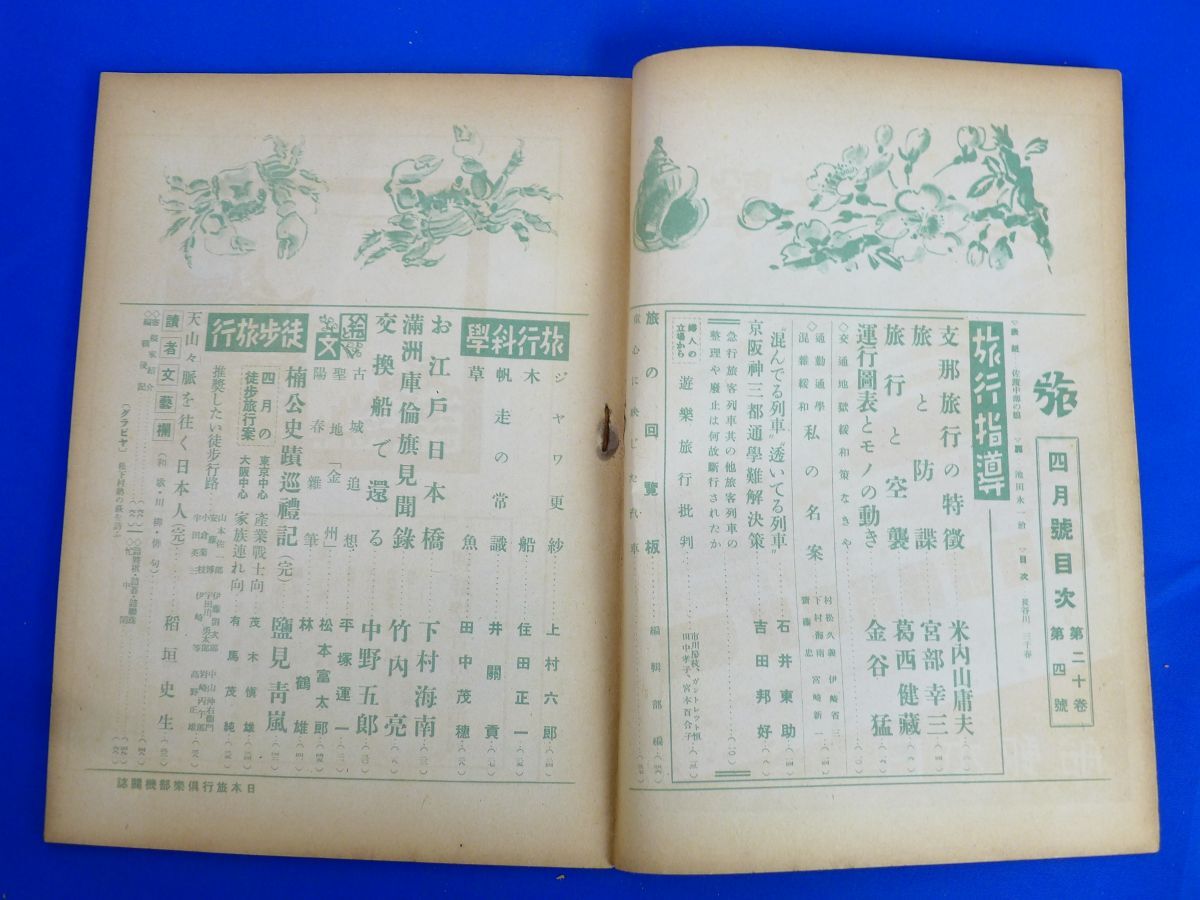 旅
四月號目次
第二十卷
第四號
▽表紙
▽目次 長谷川三千春
旅行指導
支那旅行の特徴 米內山庸夫
旅と防諜 宮部幸三
旅行と空襲 葛西健藏
運行圖表とモノの動き 金谷猛
◇交通地獄緩和策なきや
通勤通學 混雜緩和 私の名案
村松久義 伊崎省三
下村海南 宮崎新一
齋藤忠
"混んでる列車"透いてる列車" 石井東助
京阪神三都通學難解決策 吉田邦好
急行旅客列車其の他旅客列車の
整理や廢止は何故斷行されたか
婦人の立場から
遊樂旅行批判
市川房枝、ガントレット恒
田中孝子、宮本百合子
旅の回覽板 編輯部編
童心に映じた汽車
旅行科學
ジャワ更紗 上村六郎
木船 住田正一
帆走の常識 井關貢
草魚 田中茂穗
お江戶日本橋 下村海南
滿洲庫倫旗見聞錄 竹內亮
交換船で還る 中野五郎
繪文
古城追想 平塚運一
聖地「金州」 松本富太郎
陽春雜筆 林鶴雄
楠公史蹟巡禮記(完) 鹽見靑嵐
徒步旅行
四月の徒步旅行案
東京中心 產業戰士向 茂木愼雄
大阪中心 家族連れ向 有馬茂純
推獎したい徒步行路
天山々脈を往く日本人(完) 稻垣史生
讀者文藝欄
(和歌・川柳・俳句)
編輯後記
日本旅行俱樂部機關誌